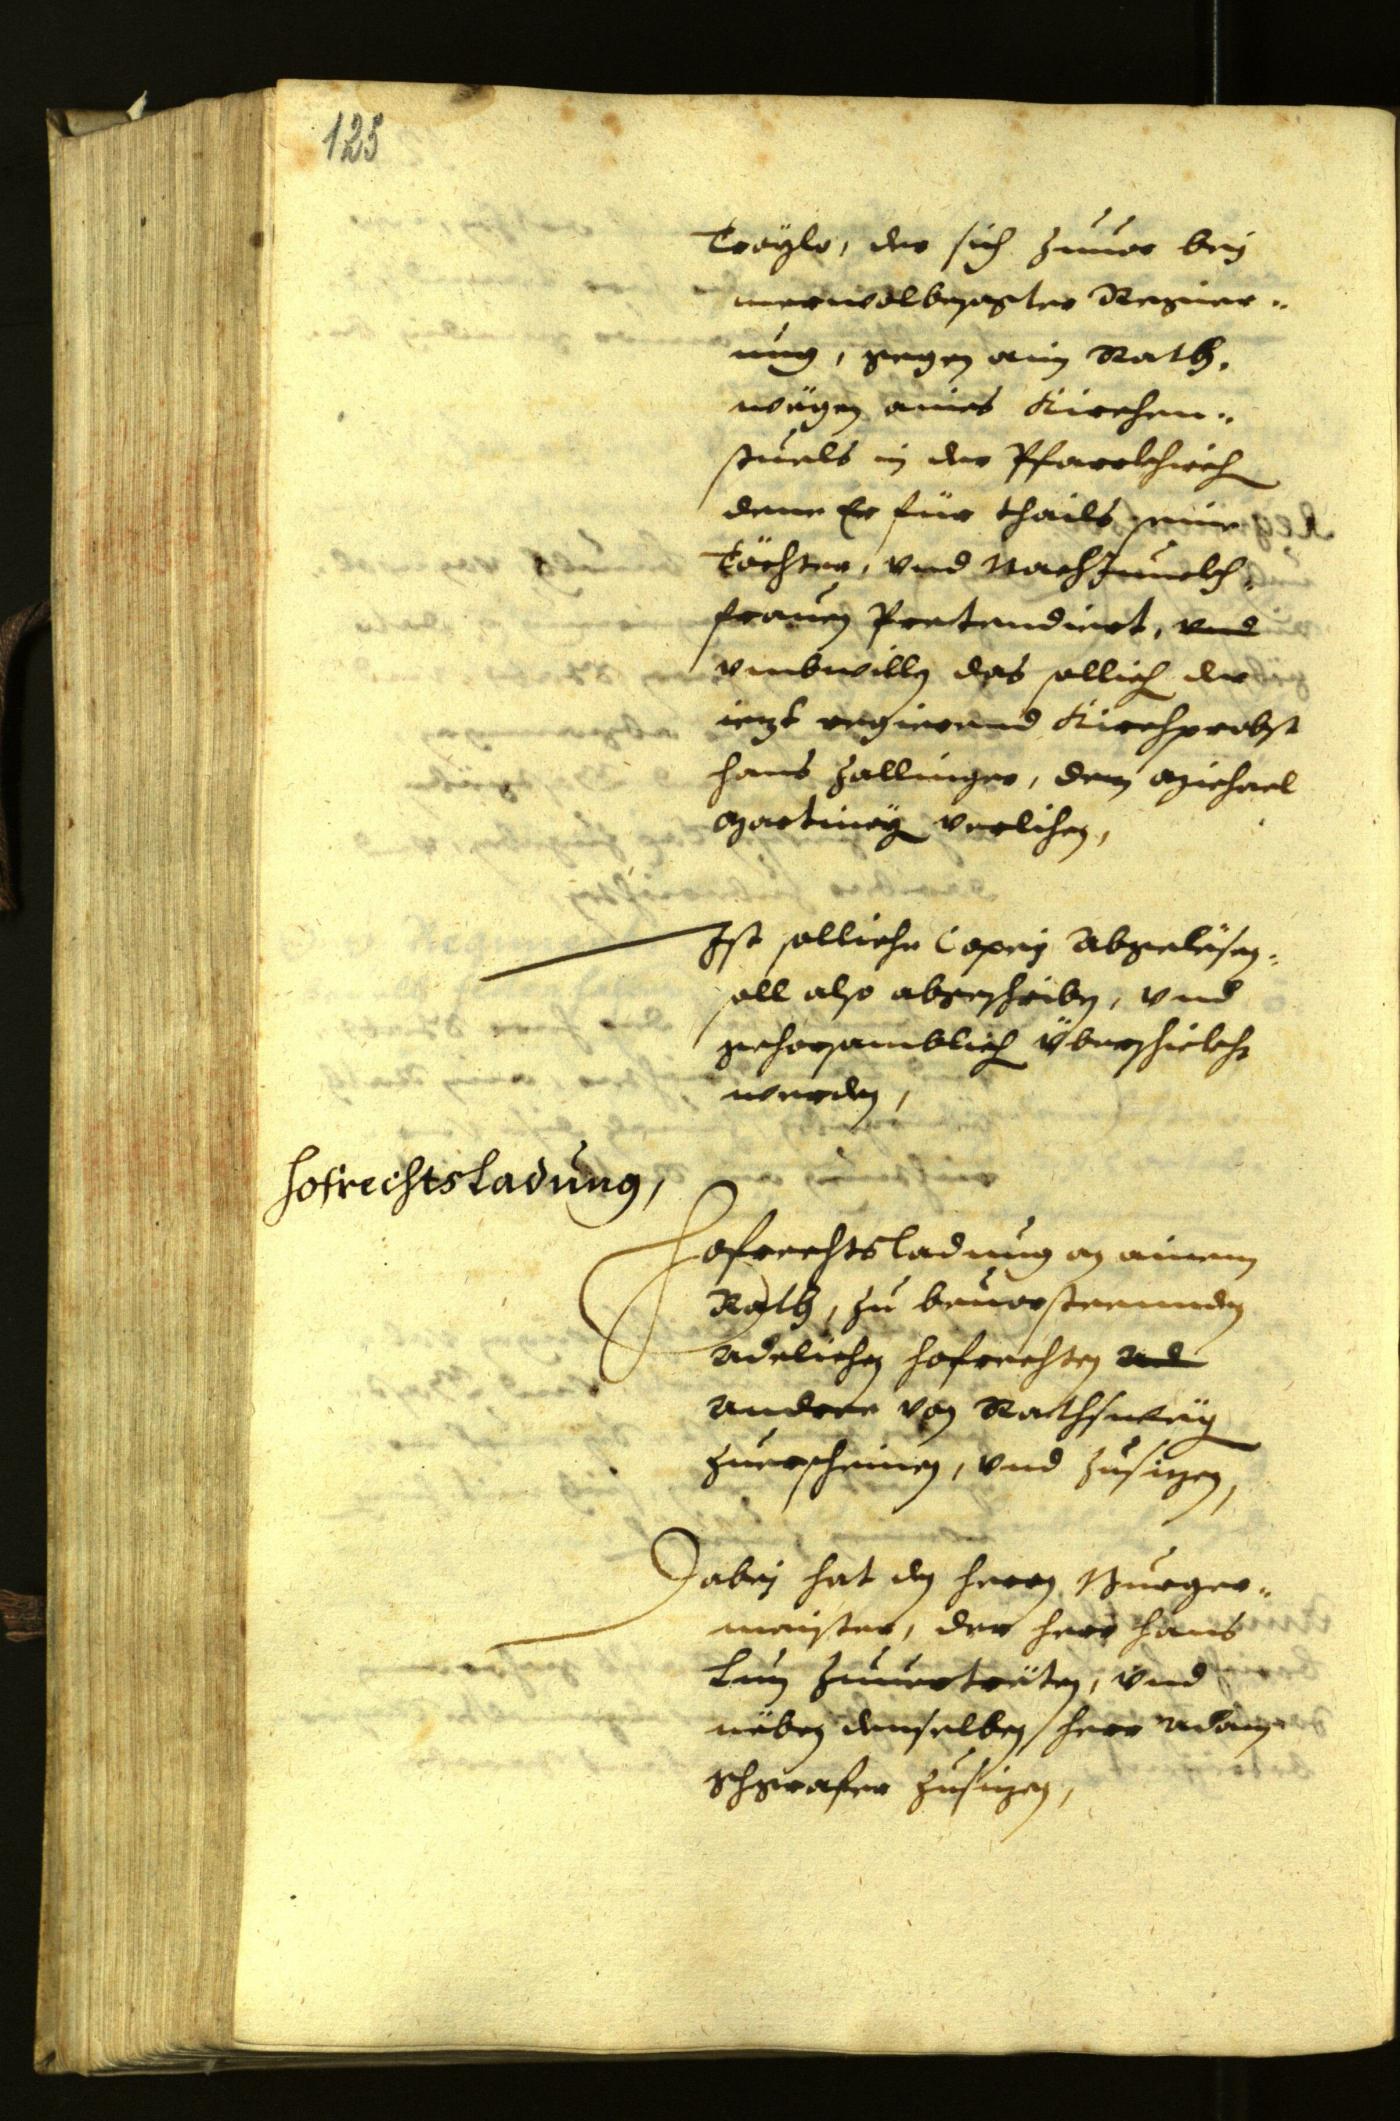 125
Tröylo, der sich zuuor bey
merwolbesagter Regier„
ung, gegen ain Rath,
wegen aines Kirchen„
stuels in der Pfarrkhirch
deme Er für thails seine
Töchter, vnd Nachzuuelch„
frauen Pretendiert, vnd
vmbwillen das sollich der
iezt regierend Kirchprobst
hans Zallinger, dem Michael
Martiney verlihen,
Ist solliche Copey Abgelesen,
soll also abgeschriben, vnd
gehorsamblich Überschickht
werden,
Hofrechtsladung,
Hofrechtsladung an ainem
Rath, zu beuorsteennden
Adelichen hofrechten
Andere von Rathsweg
zuerscheinen, vnd zusizen,
Dabey hat den herrn Burger„
maister, der herr hans
Lun zuuertreten, vnd
neben demselben herr Adam
Schgrafer zusizen,